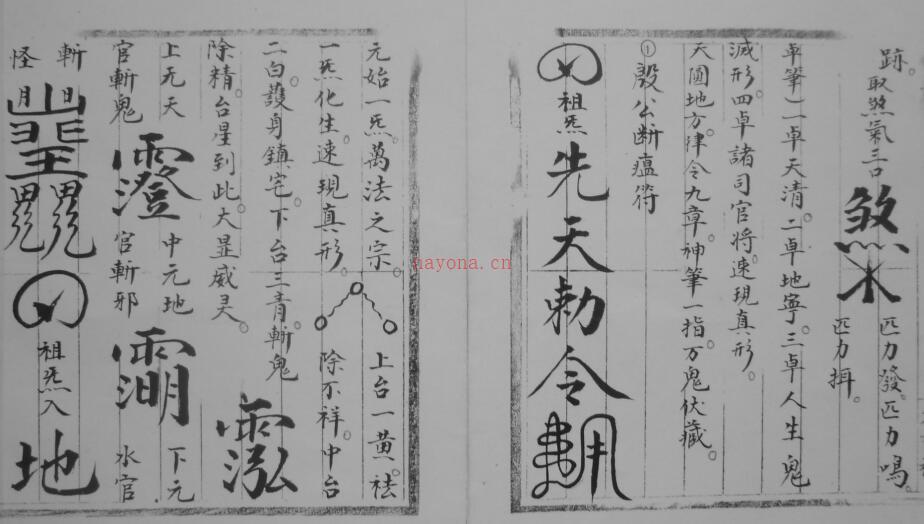 跡。取煞氣三口 煞 匹力發。匹力鳴。
匹力揖。
卓筆)一卓天清。二卓地寧。三卓人生。鬼
滅形。四卓諸司官將。速現真形。
天圓地方。律令九章。神筆一指。万鬼伏藏。
①殷公断瘟符
祖炁 先天勅令
元始一炁。萬法之宗。 上台一黄。祛
一炁化生。速現真形。 除不祥。中台
二白。護身鎮宅。下台三青。斬鬼
除精。台星到此。大显威灵。
上元天 澄 中元地 下元
官斬鬼 官斬邪 水官
斬
怪
日月
祖炁入 地
nayona.cn